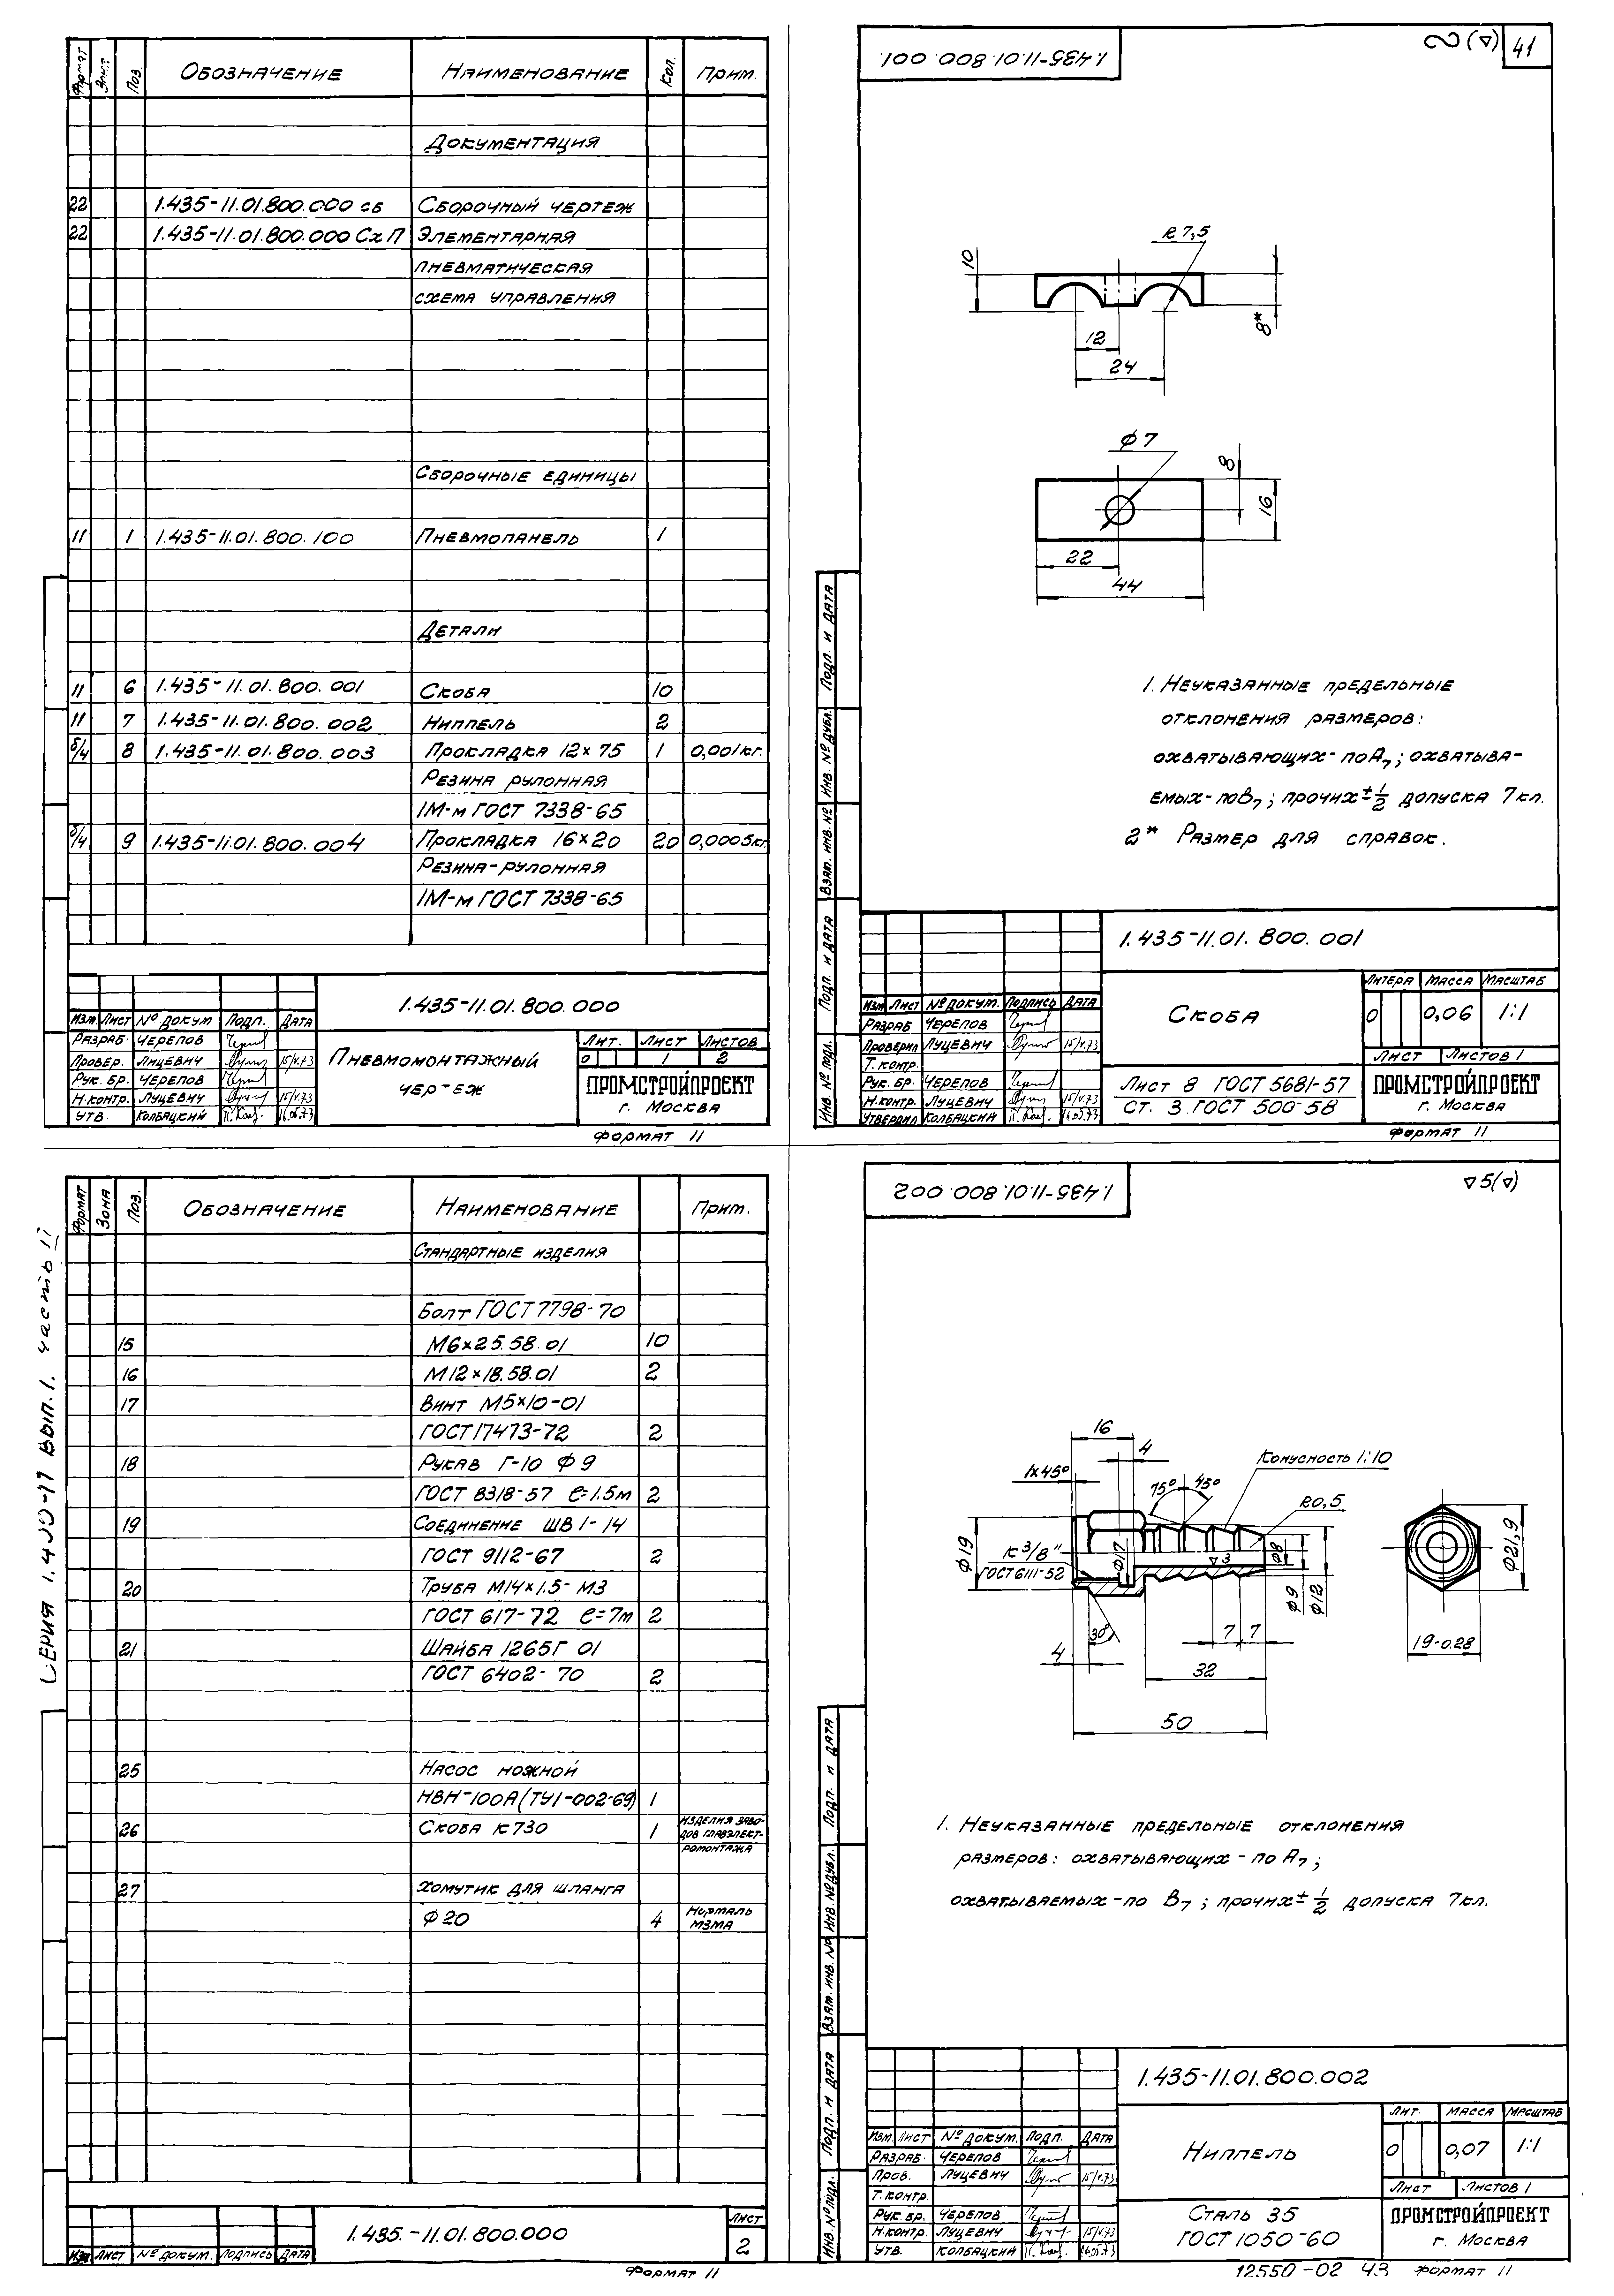 Формат Зона Поз. Обозначение Наименование Кол. Прим.
Документация
22 1.435-11.01.800.000 сб Сборочный чертеж
22 1.435-11.01.800.000 Сх П Элементарная
пневматическая
схема управления
Сборочные единицы
11 1 1.435-11.01.800.100 Пневмопанель 1
Детали
11 6 1.435-11.01.800.001 Скоба 10
11 7 1.435-11.01.800.002 Ниппель 2
б/ч 8 1.435-11.01.800.003 Прокладка 12×75 1 0,001кг.
Резина рулонная
1М-м ГОСТ 7338-65
б/ч 9 1.435-11.01.800.004 Прокладка 16×20 20 0,0005кг.
Резина-рулонная
1М-м ГОСТ 7338-65
1.435-11.01.800.000
Изм. Лист № докум Подп. Дата
Разраб. Черепов
Провер. Луцевич 15/V.73
Рук. бр. Черепов
Н.контр. Луцевич 15/V.73
Утв. Колбацкий
Пневмомонтажный
чертеж
Лит. Лист Листов
0 1 2
ПРОМСТРОЙПРОЕКТ
г. Москва
Формат 11
1.435-11.01.800.001.
41
R 7,5
10
8*
12
24
Ф 7
8
16
22
44
1. Неуказанные предельные
отклонения размеров:
охватывающих-по А7; охватыва-
емых-по В7; прочих ± 1/2 допуска 7 кл.
2* Размер для справок.
Подп. и дата
Инв. № дубл.
Взам. инв. №
Подп. и дата
Инв. № подл.
1.435-11.01.800.001
Изм Лист № докум. Подпись Дата
Разраб Черепов
Проверил Луцевич 15/V.73
Т. контр.
Рук. бр. Черепов
Н.контр. Луцевич 15/V.73
Утвердил Колбацкий
Скоба
Литера Масса Масштаб
0 0,06 1:1
Лист Листов 1
Лист 8 ГОСТ 5681-57
Ст. 3 ГОСТ 500-58
ПРОМСТРОЙПРОЕКТ
г. Москва
Формат 11
часть II
Формат Зона Поз. Обозначение Наименование Прим.
Стандартные изделия
Болт ГОСТ 7798-70
15 М6×25.58.01 10
16 М12×18.58.01 2
17 Винт М5×10-01
ГОСТ 17473-72 2
18 Рукав Г-10 Ф 9
ГОСТ 8318-57 ℓ=1.5м 2
19 Соединение ШВ 1-14
ГОСТ 9112-67 2
20 Труба М14×1.5-М3
ГОСТ 617-72 ℓ=7м 2
21 Шайба 1265Г 01
ГОСТ 6402-70 2
25 Насос ножной
НВН-100А (ТУ1-002-69) 1
26 Скоба К730 1 изделия заво-
дов главэлект-
ромонтажа
27 Хомутик для шланга
Ф 20 4 Нормаль
МЗМА
1.435.-11.01.800.000
Лист
2
Изм Лист № докум. Подпись Дата
Формат 11
1.435-11.01.800.002
▽5(▽)
16
4
1×45°
75° 45°
Конусность 1:10
R0,5
Ф19
К 3/8"
ГОСТ 6111-52
Ф17
▽3
Ф8
Ф9
Ф12
Ф21,9
30°
4
7 7
32
50
19-0.28
1. Неуказанные предельные отклонения
размеров: охватывающих-по А7;
охватываемых-по В7; прочих ± 1/2 допуска 7 кл.
Подп. и дата
Инв. № дубл.
Взам. инв. №
Подп. и дата
Инв. № подл.
1.435-11.01.800.002
Изм. Лист № докум. Подп. Дата
Разраб. Черепов
Пров. Луцевич 15/V.73
Т. контр.
Рук. бр. Черепов
Н.контр. Луцевич 15/V.73
Утв. Колбацкий
Ниппель
Лит. Масса Масштаб
0 0,07 1:1
Лист Листов 1
Сталь 35
ГОСТ 1050-60
ПРОМСТРОЙПРОЕКТ
г. Москва
12550-02 43 Формат 11